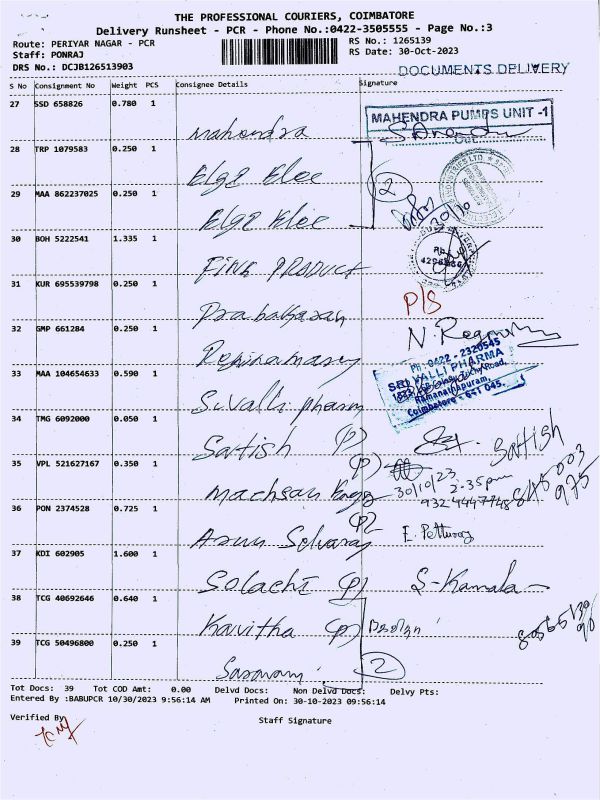 THE PROFESSIONAL COURIERS, COIMBATORE
Delivery Runsheet - PCR - Phone No.:0422-3505555 - Page No.:3
Route: PERIYAR NAGAR - PCR
RS No.: 1265139
Staff: PONRAJ
RS Date: 30-Oct-2023
DRS No.: DCJB126513903
DOCUMENTS DELIVERY
S No Consignment No Weight PCS Consignee Details Signature
27 SSD 658826 0.780 1
MAHENDRA PUMPS UNIT -1
Mahendra
28 TRP 1079583 0.250 1
Elgi Elec
2
29 MAA 862237025 0.250 1
30/10
Elgi Elec
30 BOH 5222541 1.335 1
FINE PRODUCT
31 KUR 695539798 0.250 1
P/S
Prabakaran
32 GMP 661284 0.250 1
Ph : 0422 - 2320545
SRI VALLI PHARMA
Ramanathapuram,
Coimbatore - 641 045.
33 MAA 104654633 0.590 1
S.Valli pharm
34 TMG 6092000 0.050 1
Satish (P)
Satish
35 VPL 521627167 0.350 1
(P)
30/10/23
2.35pm
36 PON 2374528 0.725 1
Arun Selvaraj
37 KDI 602905 1.600 1
Solachi (P)
S-Kamala
38 TCG 40692646 0.640 1
Kavitha (P)
39 TCG 50496800 0.250 1
2
Tot Docs: 39 Tot COD Amt: 0.00 Delvd Docs: Non Delvd Docs: Delvy Pts:
Entered By :BABUPCR 10/30/2023 9:56:14 AM Printed On: 30-10-2023 09:56:14
Verified By
Staff Signature